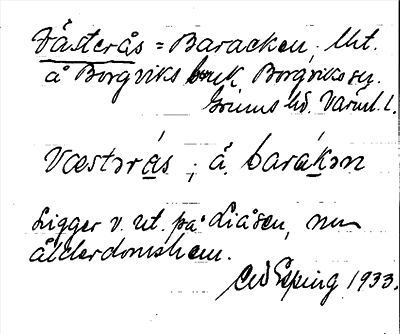 Västerås = Baracken, Ut.
å Borgviks bruk, Borgviks sn.
Grums hd. Värml. l.
Væstərás ; å. barákən
Ligger v. ut. på Liåsen, nu
ålderdomshem.
Esping 1933.